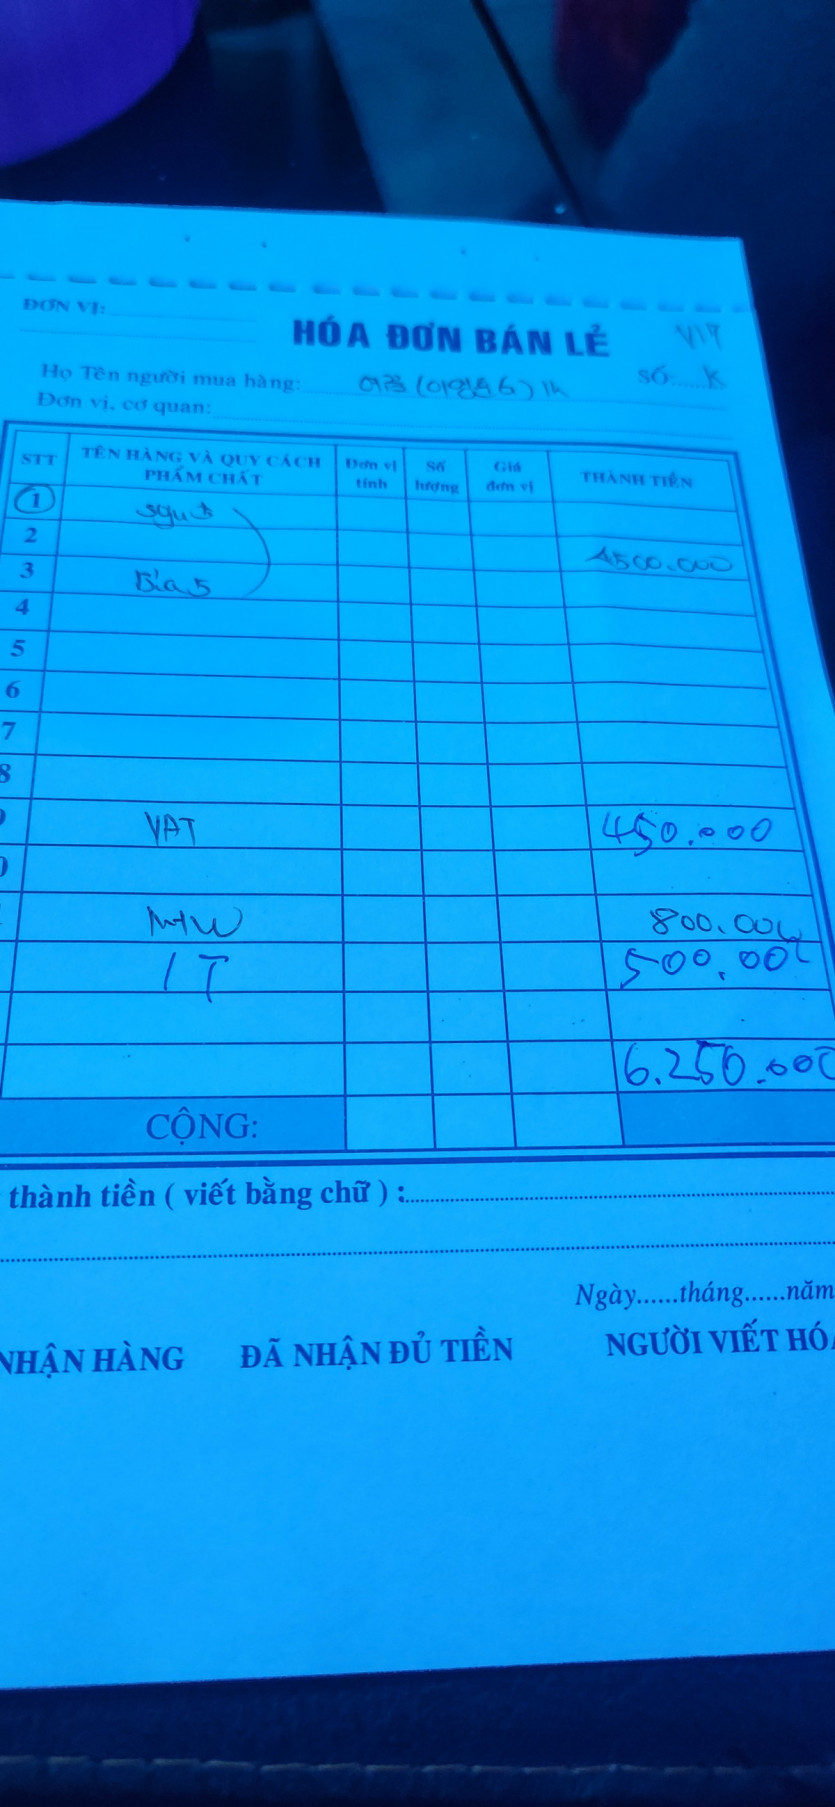 ĐƠN VỊ:
HÓA ĐƠN BÁN LẺ
VI9
Họ Tên người mua hàng:
SỐ: K
Đơn vị, cơ quan:
STT TÊN HÀNG VÀ QUY CÁCH PHẨM CHẤT Đơn vị tính Số lượng Giá đơn vị THÀNH TIỀN
1
2 4500.000
3 Bia 5
4
5
6
7
8
VAT 450.000
800.000
1 T 500.000
6.250.000
CỘNG:
thành tiền ( viết bằng chữ ) :
Ngày......tháng......năm
NHẬN HÀNG ĐÃ NHẬN ĐỦ TIỀN NGƯỜI VIẾT HÓA